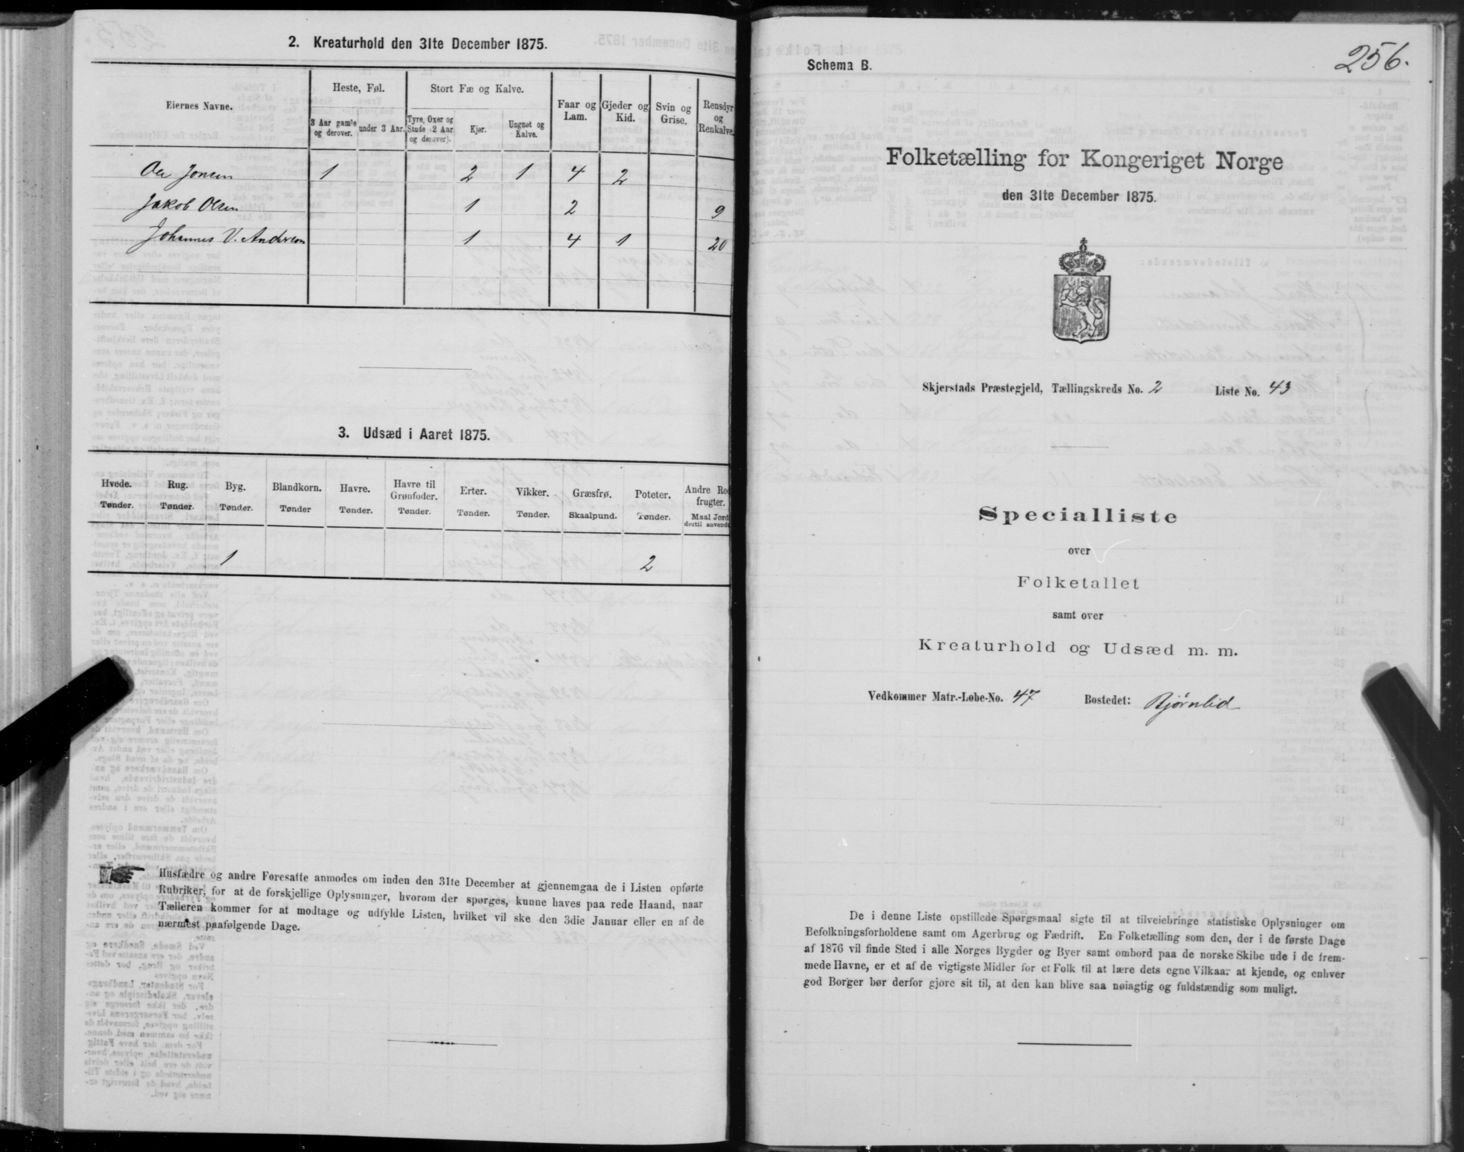 2. Kreaturhold den 31te December 1875.
Eiernes Navne.
Heste, Føl.
Stort Fæ og Kalve.
Faar og Lam.
Gjeder og Kid.
Svin og Grise.
Rensdyr og Renkalve.
3 Aar gamle og derover.
under 3 Aar.
Tyre, Oxer og Stude (2 Aar og derover).
Kjør.
Ungnet og Kalve.
Ole Jonsen 1 2 1 4 2
Jakob Olsen 1 2 9
Johannes V. Andersen 1 4 1 20
3. Udsæd i Aaret 1875.
Hvede. Rug. Byg. Blandkorn. Havre. Havre til Grønfoder. Erter. Vikker. Græsfrø. Poteter. Andre Rod frugter.
Tønder. Tønder. Tønder. Tønder Tønder. Tønder. Tønder. Tønder. Skaalpund. Tønder. Maal Jord dertil anvendt
1 2
Husfædre og andre Foresatte anmodes om inden den 31te December at gjennemgaa de i Listen opførte
Rubriker, for at de forskjellige Oplysninger, hvorom der spørges, kunne haves paa rede Haand, naar
Tælleren kommer for at modtage og udfylde Listen, hvilket vil ske den 3die Januar eller en af de
nærmest paafølgende Dage.
Schema B.
256.
Folketælling for Kongeriget Norge
den 31te December 1875.
Skjerstads Præstegjeld, Tællingskreds No. 2 Liste No. 43
Specialliste
over
Folketallet
samt over
Kreaturhold og Udsæd m. m.
Vedkommer Matr.-Løbe-No. 47 Bostedet: Bjørnlid
De i denne Liste opstillede Spørgsmaal sigte til at tilveiebringe statistiske Oplysninger om
Befolkningsforholdene samt om Agerbrug og Fædrift. En Folketælling som den, der i de første Dage
af 1876 vil finde Sted i alle Norges Bygder og Byer samt ombord paa de norske Skibe ude i de frem-
mede Havne, er et af de vigtigste Midler for et Folk til at lære dets egne Vilkaar at kjende, og enhver
god Borger bør derfor gjøre sit til, at den kan blive saa nøiagtig og fuldstændig som muligt.